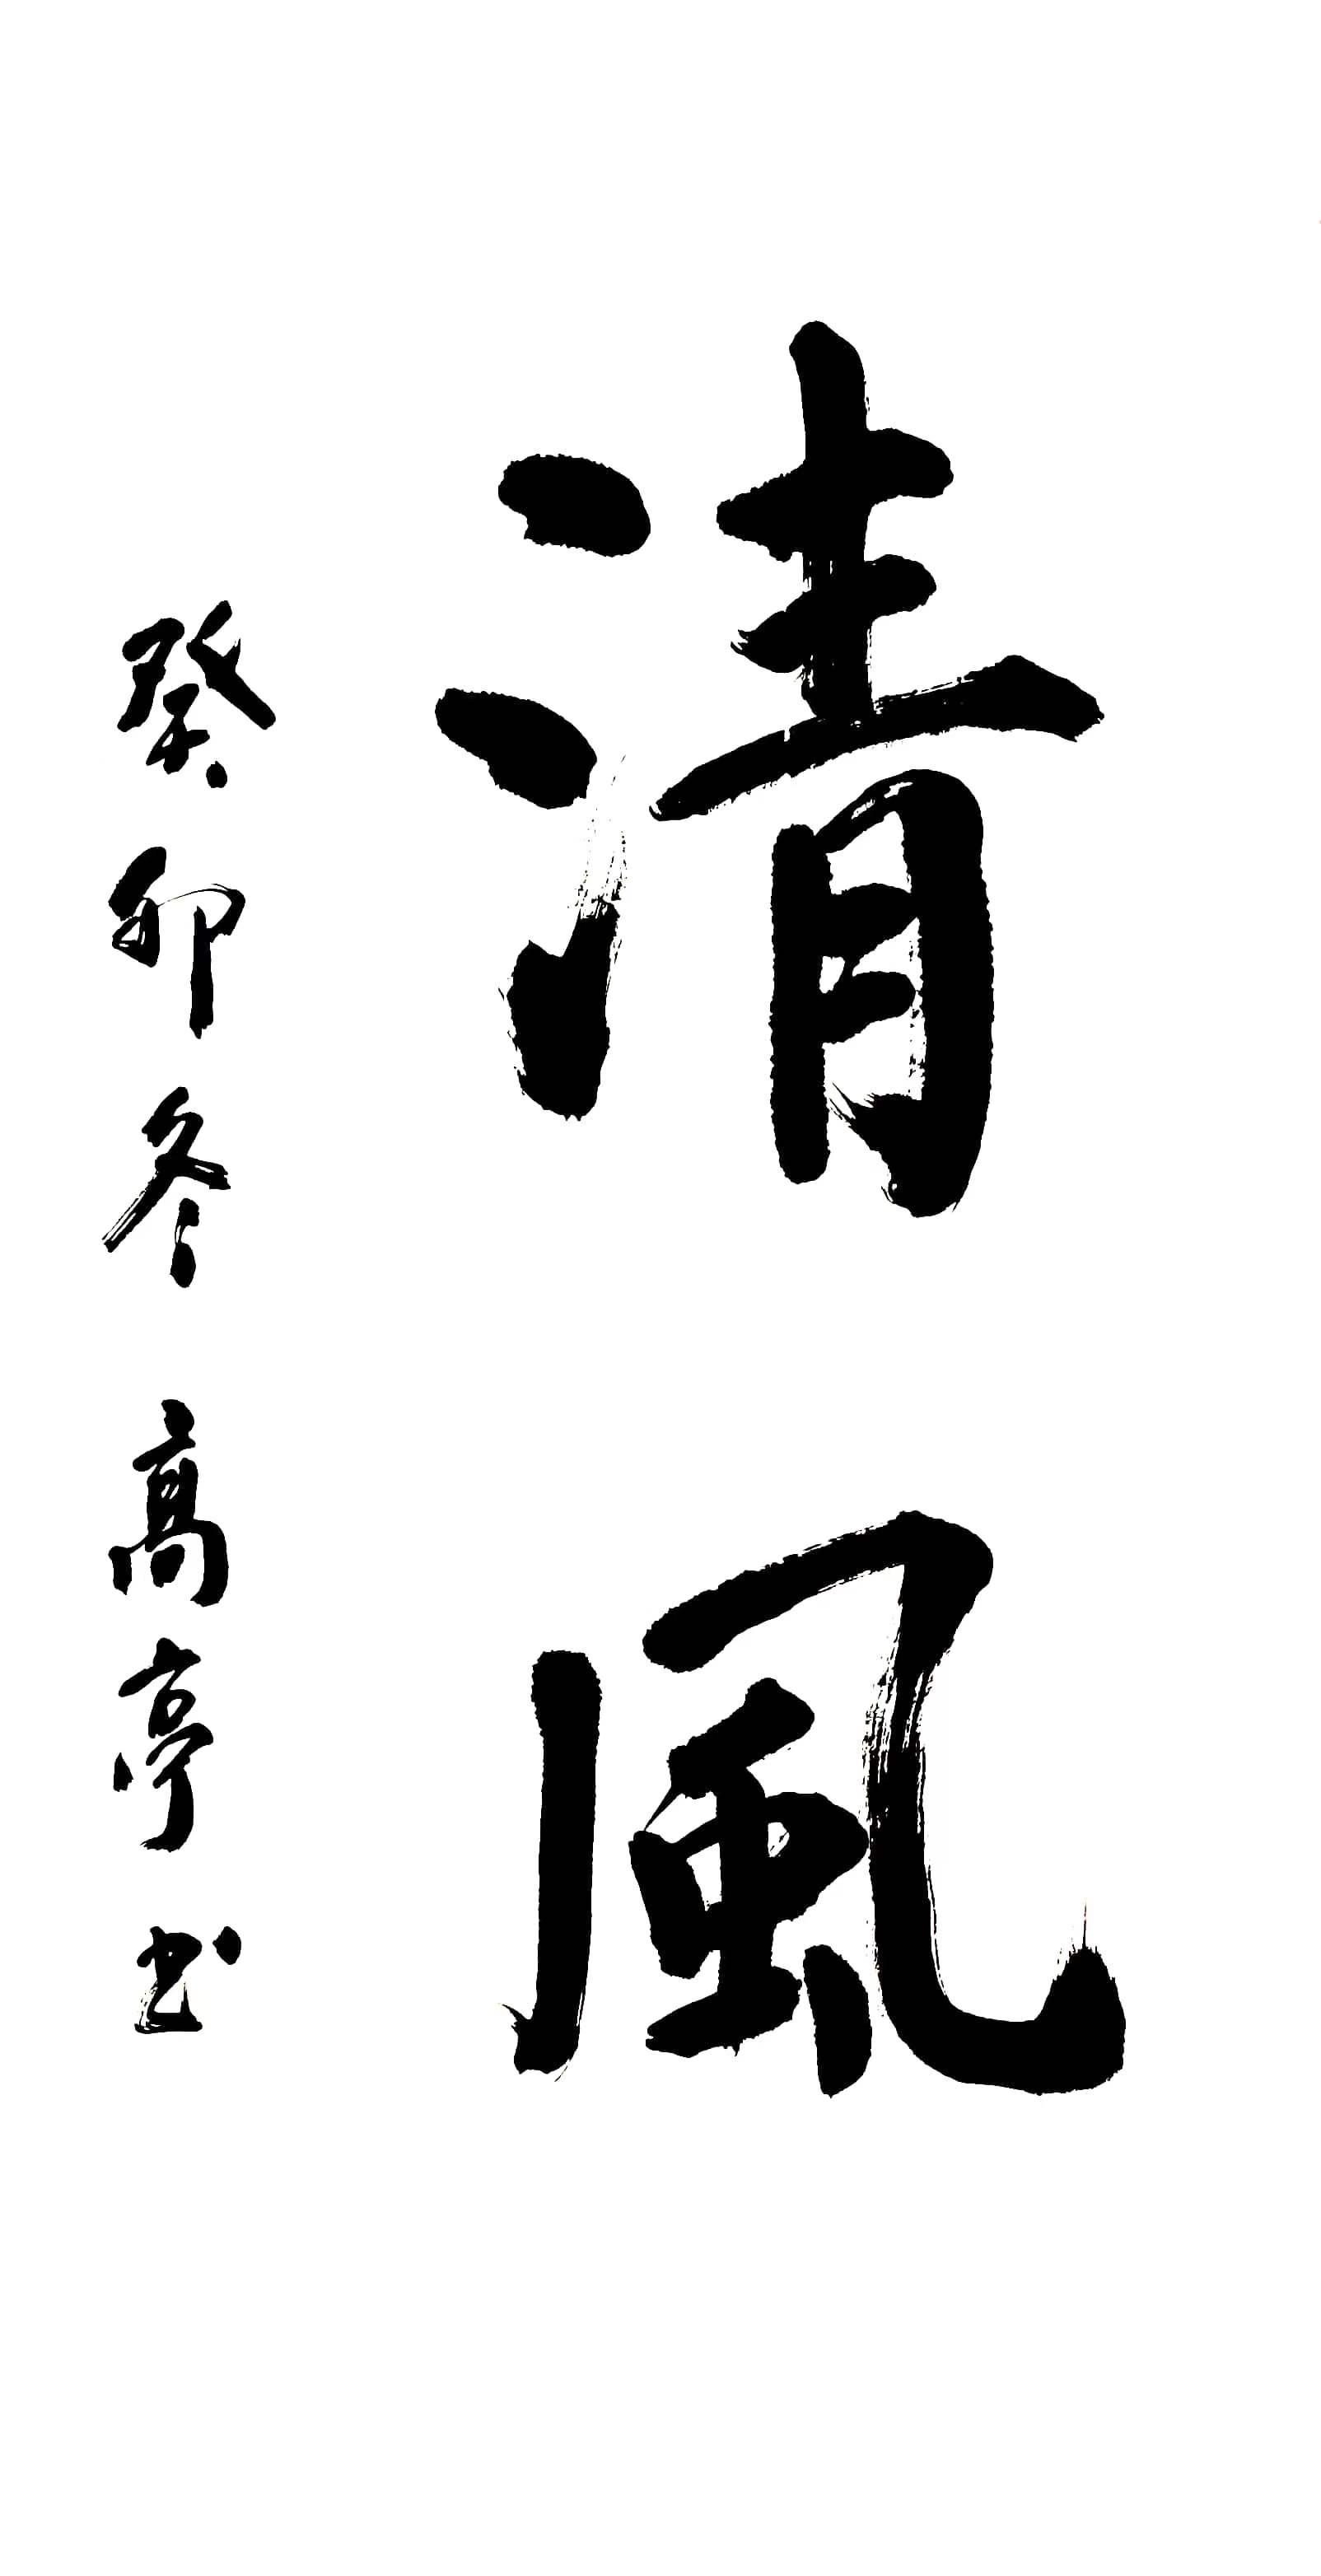 清風
癸卯冬 高亭书